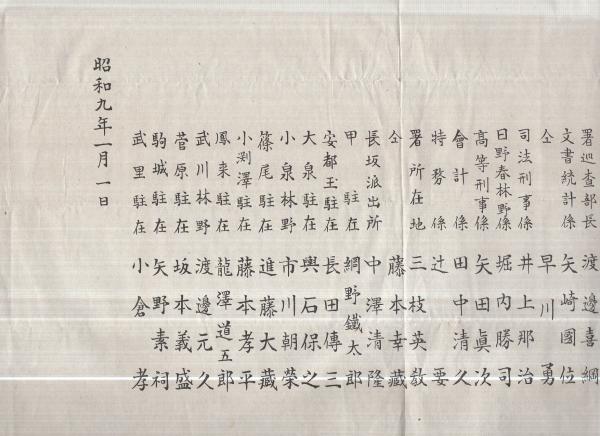 署巡査部長 渡邊喜綱
文書統計係 矢崎國位
仝 早川勇
司法刑事係 井上那治
日野春林野係 堀内勝司
高等刑事係 矢田眞次
會計係 田中清久
特務係 辻要
署所在地 三枝英教
仝 藤本幸藏
長坂派出所 中澤清隆
甲駐在 網野鐵太郎
安都玉駐在 長田傳三
大泉駐在 與石保之
小泉林野 市川朝榮
篠尾駐在 進藤大藏
小渕澤駐在 藤本孝平
鳳来駐在 龍澤道五郎
武川林野 渡邊元久
菅原駐在 坂本義盛
駒城駐在 矢野素祠
武里駐在 小倉孝
昭和九年一月一日